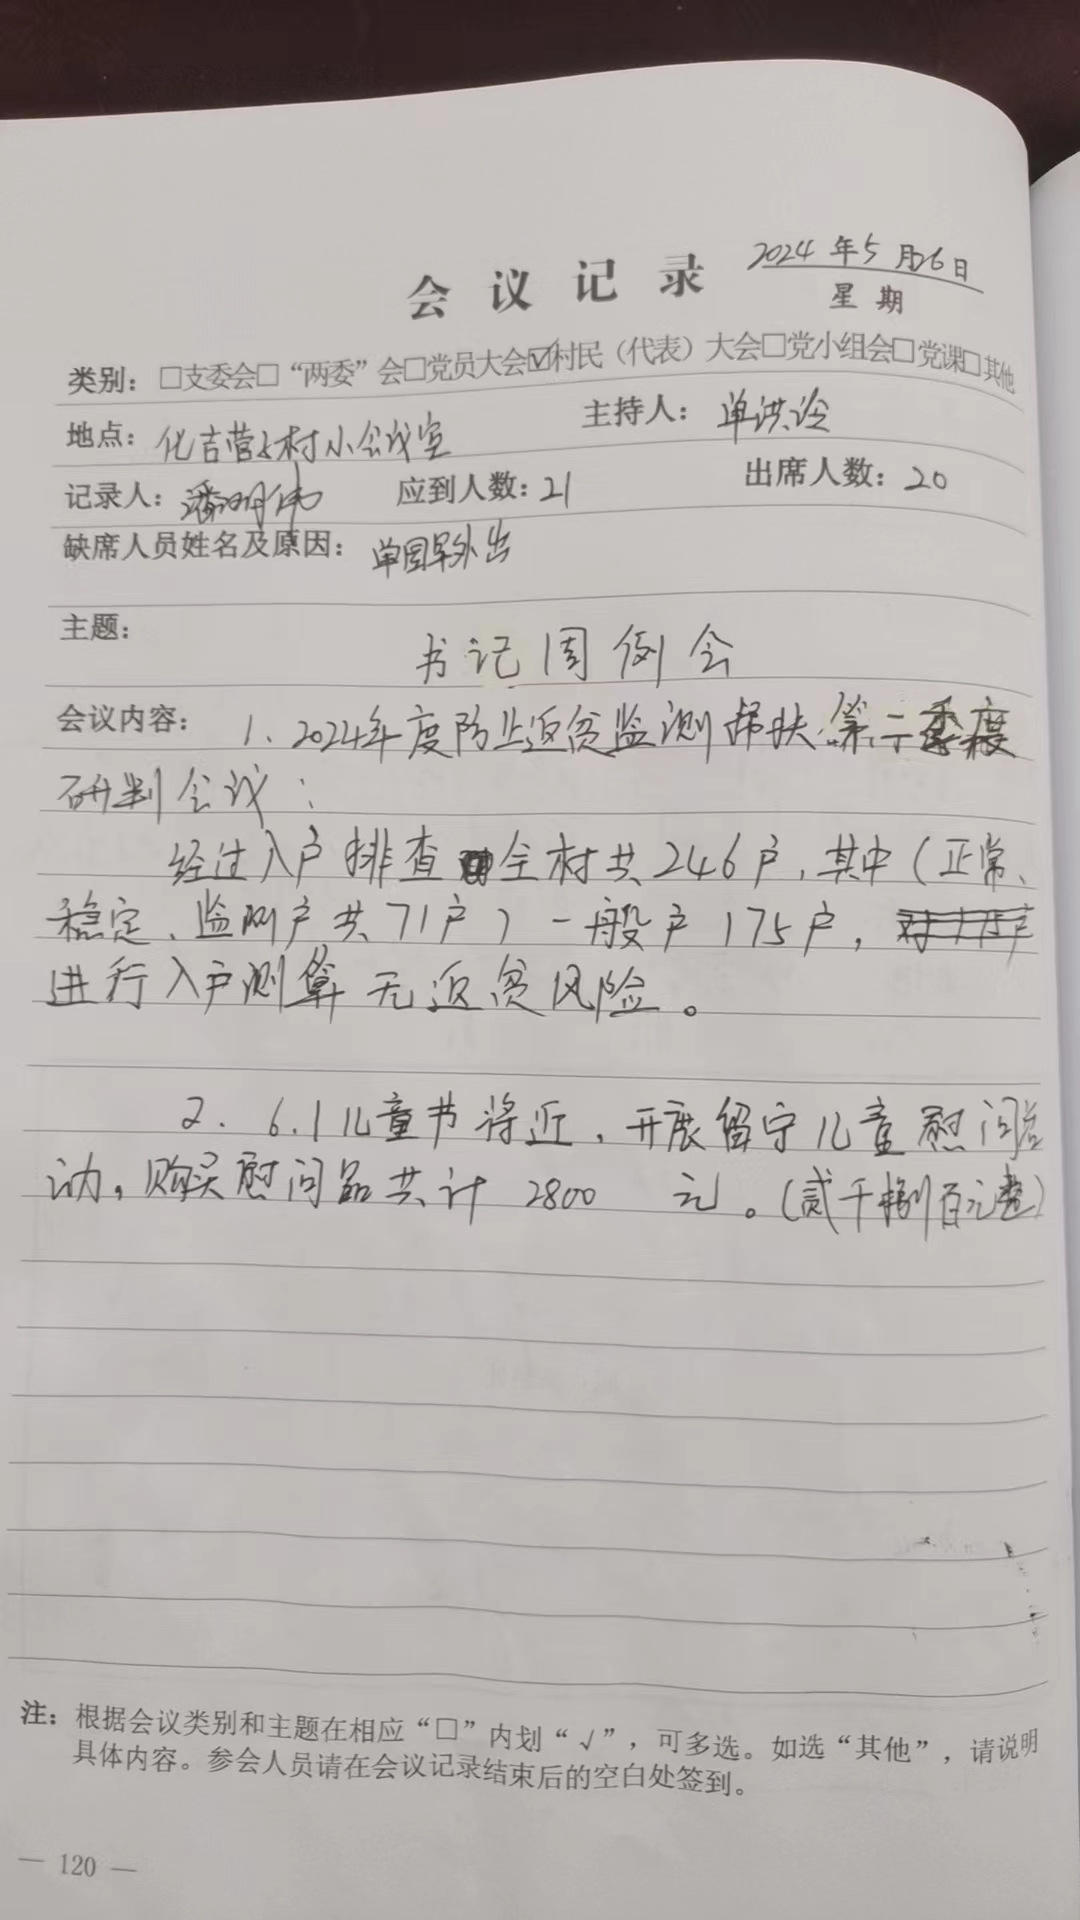 会议记录
2024年5月26日
星期
类别：□支委会□“两委”会□党员大会☑村民（代表）大会□党小组会□党课□其他
地点：化吉营子村小会议室
主持人：单洪
记录人：潘明伟 应到人数：21 出席人数：20
缺席人员姓名及原因：单国军外出
主题：
书记周例会
会议内容：1、2024年度防止返贫监测帮扶第二季度
研判会议：
经过入户排查全村共246户，其中（正常、
稳定、监测户共71户）一般户175户，
进行入户测算无返贫风险。
2. 6.1儿童节将近，开展留守儿童慰问活
动，购买慰问品共计 2800 元。（贰千捌百元整）
注：根据会议类别和主题在相应“□”内划“√”，可多选。如选“其他”，请说明
具体内容。参会人员请在会议记录结束后的空白处签到。
— 120 —